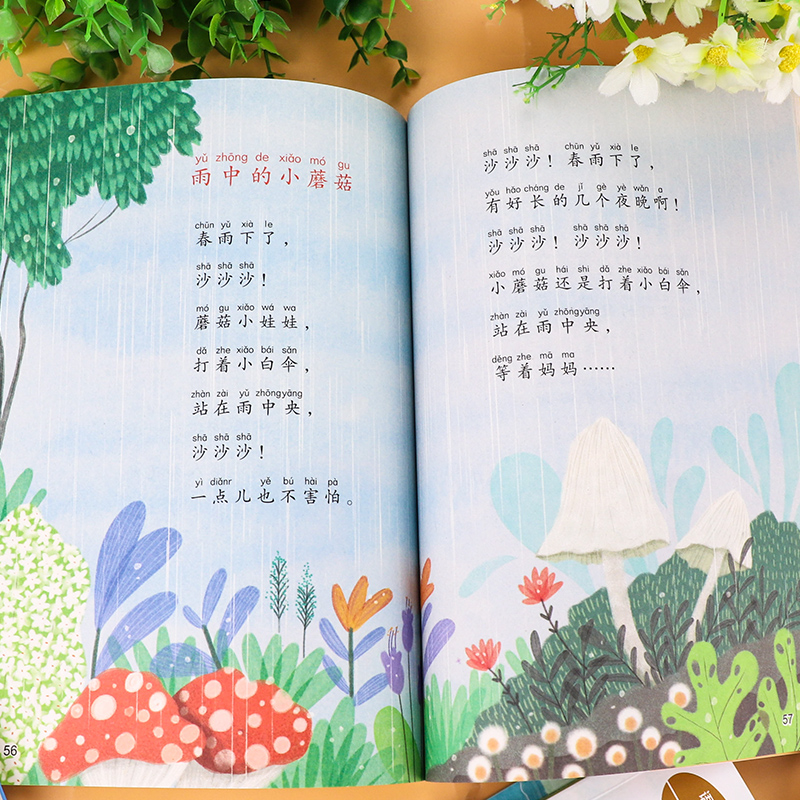 yǔ zhōng de xiǎo mó gu
雨中的小蘑菇
chūn yǔ xià le
春雨下了，
shā shā shā
沙沙沙！
mó gu xiǎo wá wa
蘑菇小娃娃，
dǎ zhe xiǎo bái sǎn
打着小白伞，
zhàn zài yǔ zhōng yāng
站在雨中央，
shā shā shā
沙沙沙！
yì diǎnr yě bú hài pà
一点儿也不害怕。
56
shā shā shā chūn yǔ xià le
沙沙沙！春雨下了，
yǒu hǎo cháng de jǐ gè yè wǎn a
有好长的几个夜晚啊！
shā shā shā shā shā shā
沙沙沙！沙沙沙！
xiǎo mó gu hái shi dǎ zhe xiǎo bái sǎn
小蘑菇还是打着小白伞，
zhàn zài yǔ zhōng yāng
站在雨中央，
děng zhe mā ma
等着妈妈……
57